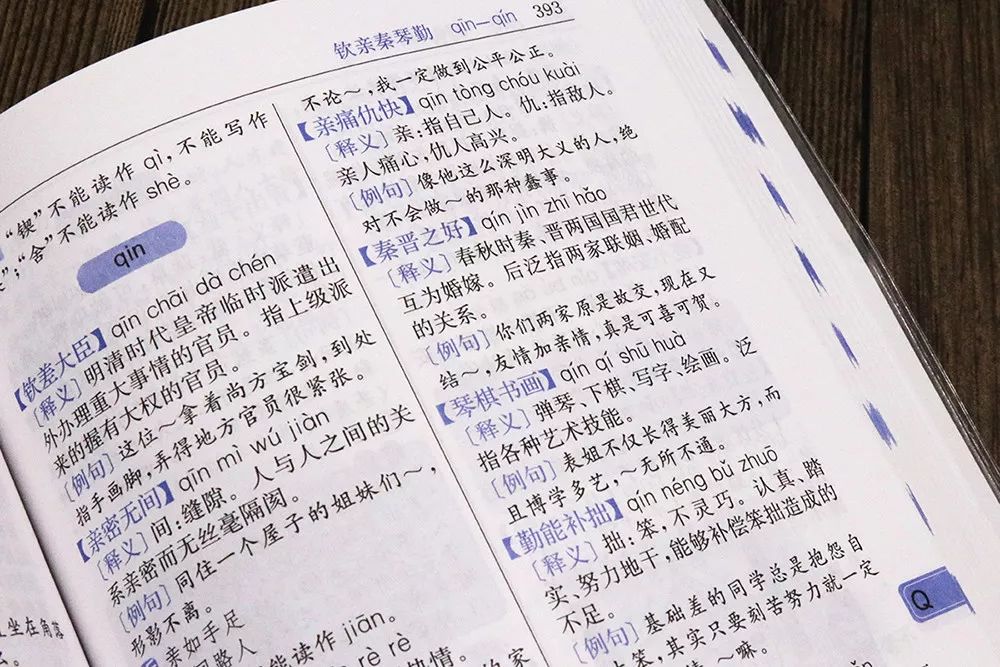 钦亲秦琴勤 qīn—qín 393
“锲”不能读作 qì，不能写作
“舍”不能读作 shè。
qin
【钦差大臣】qīn chāi dà chén
［释义］明清时代皇帝临时派遣出
外办理重大事情的官员。指上级派
来的握有大权的官员。
［例句］这位～拿着尚方宝剑，到处
指手画脚，弄得地方官员很紧张。
【亲密无间】qīn mì wú jiàn
［释义］间：缝隙。人与人之间的关
系亲密而无丝毫隔阂。
［例句］同住一个屋子的姐妹们～，
形影不离。
亲如手足
路人
能读作 jiān。
rè rè
坐在角落
不论～，我一定做到公平公正。
【亲痛仇快】qīn tòng chóu kuài
［释义］亲：指自己人。仇：指敌人。
亲人痛心，仇人高兴。
［例句］像他这么深明大义的人，绝
对不会做～的那种蠢事。
【秦晋之好】qín jìn zhī hǎo
［释义］春秋时秦、晋两国国君世代
互为婚嫁。后泛指两家联姻、婚配
的关系。
［例句］你们两家原是故交，现在又
结～，友情加亲情，真是可喜可贺。
【琴棋书画】qín qí shū huà
［释义］弹琴、下棋、写字、绘画。泛
指各种艺术技能。
［例句］表姐不仅长得美丽大方，而
且博学多艺，～无所不通。
【勤能补拙】qín néng bǔ zhuō
［释义］拙：笨，不灵巧。认真、踏
实、努力地干，能够补偿笨拙造成的
不足。
［例句］基础差的同学总是抱怨自
笨，其实只要刻苦努力就一定
～嘛。
Q